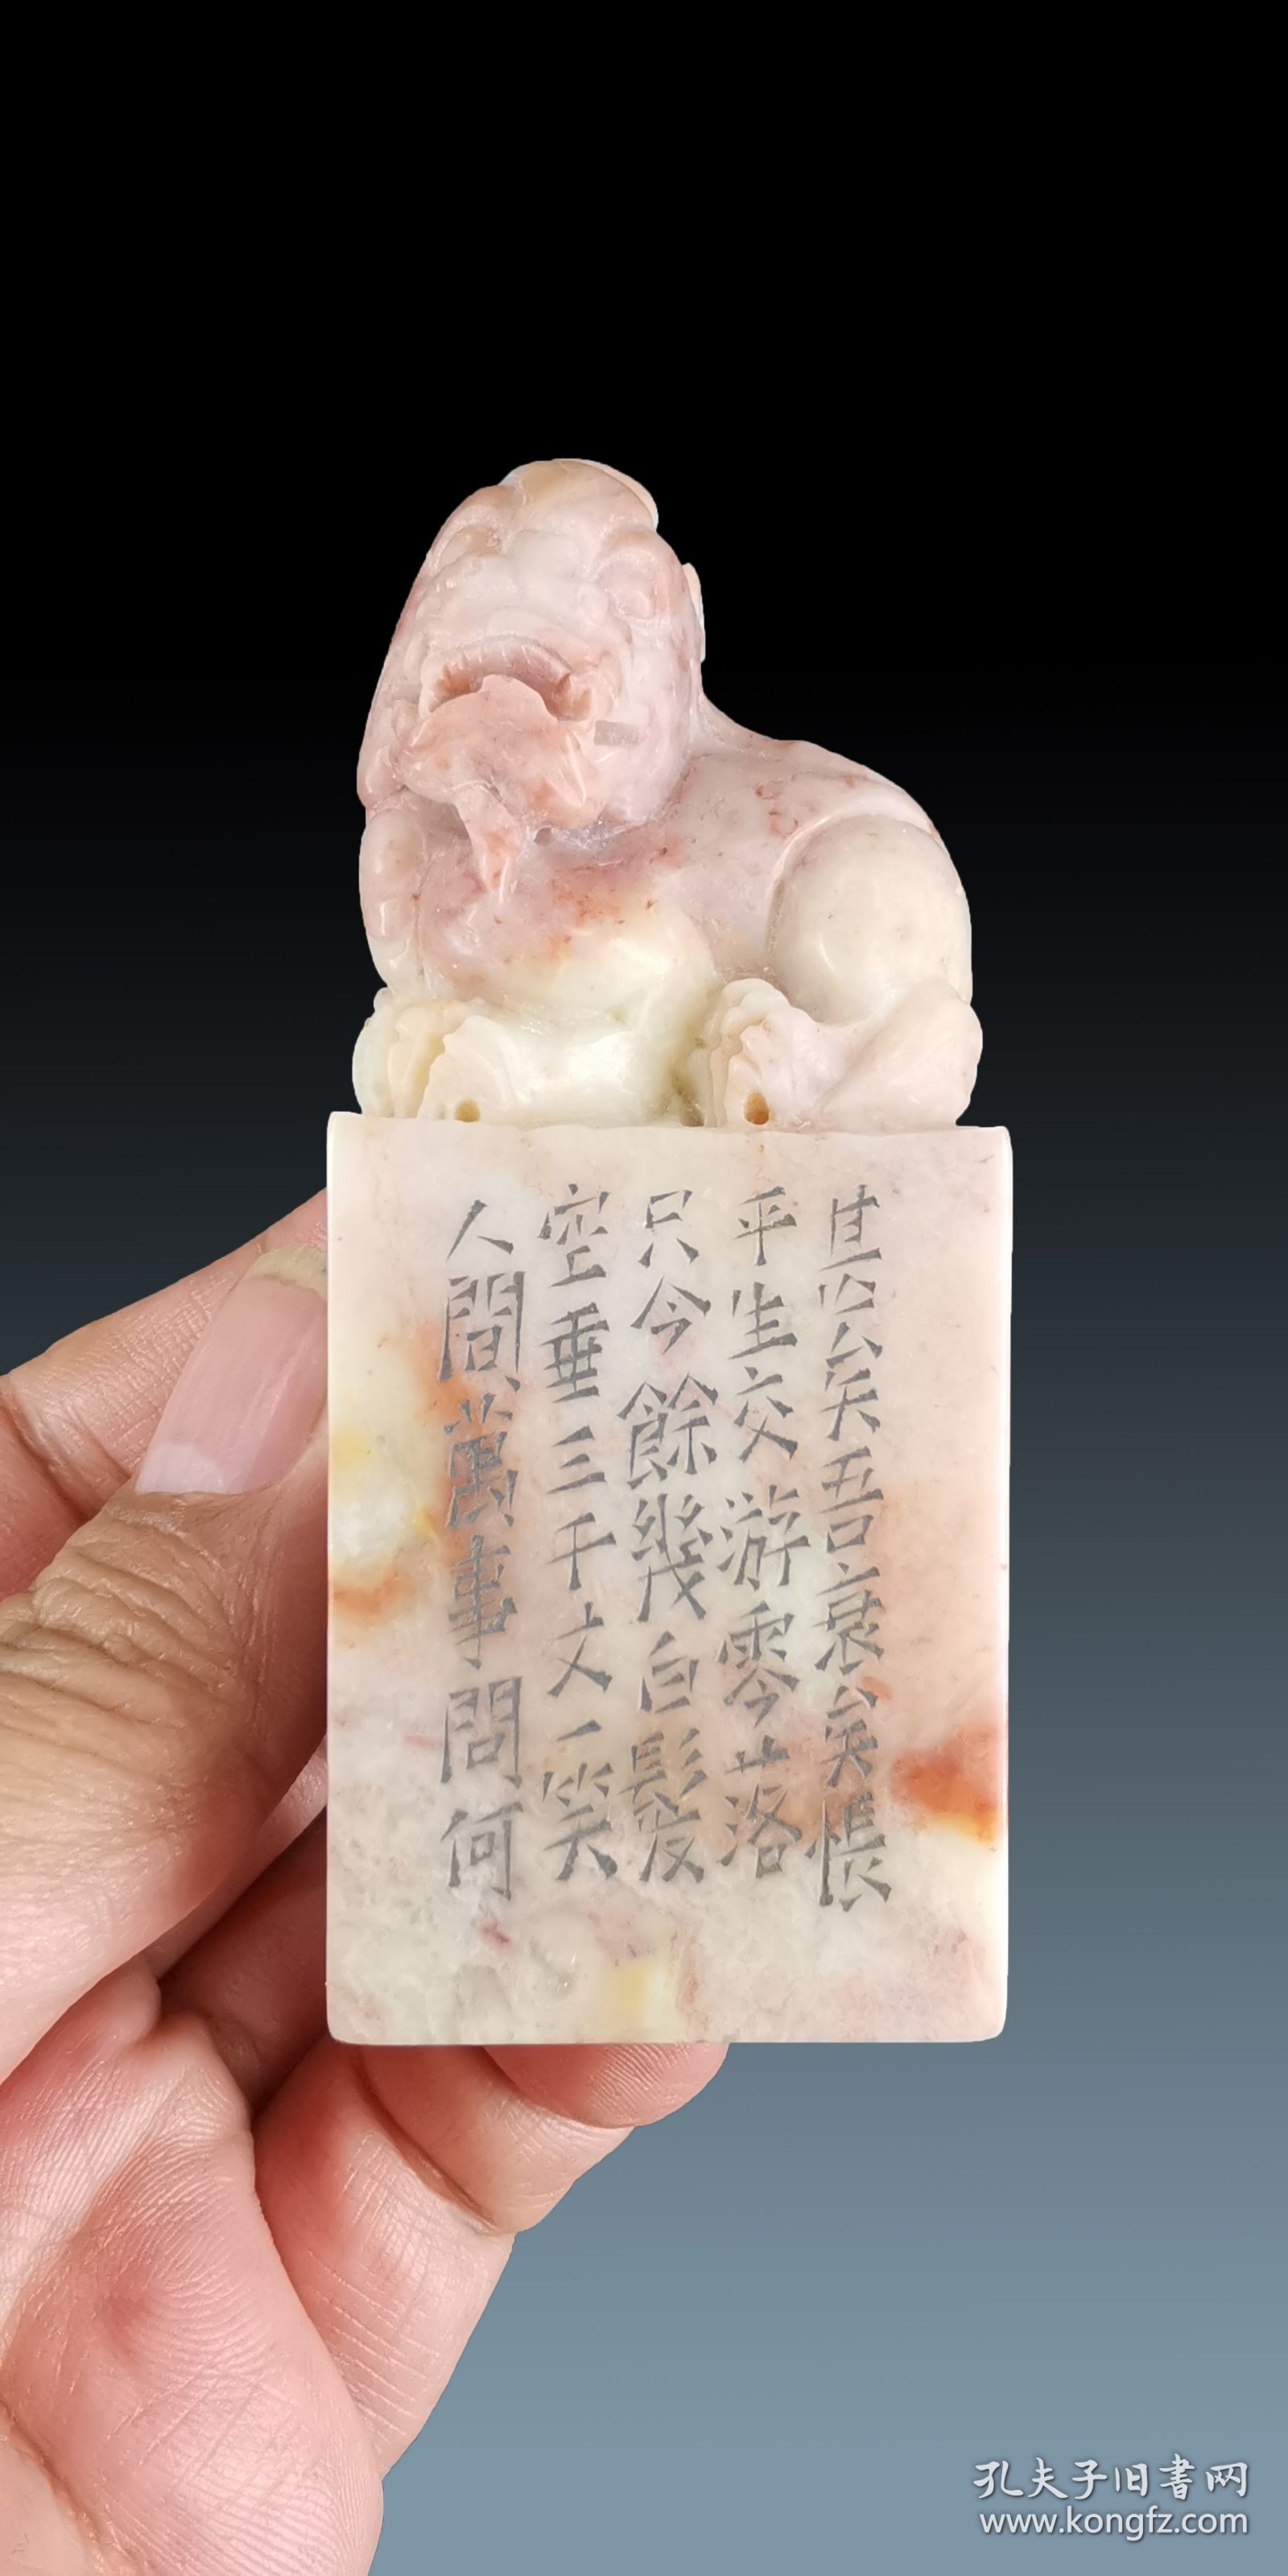 甚矣吾衰矣悵
平生交游零落
只今餘幾白髮
空垂三千丈一笑
人間萬事問何
孔夫子旧書网
www.kongfz.com